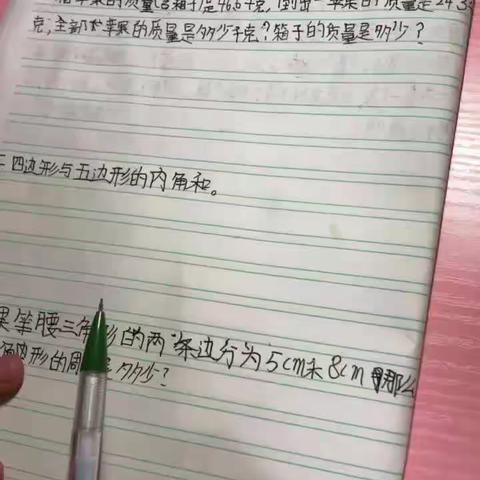 箱苹果的质量(含箱子)是46.6千克,倒出一 苹果的 质量是24.3
克,全部 苹果的质量是多少千克?箱子的质量是多少?
四边形与五边形的内角和。
果等腰三角形的两条边分为5cm和8cm 那么
角形的周 是多少?